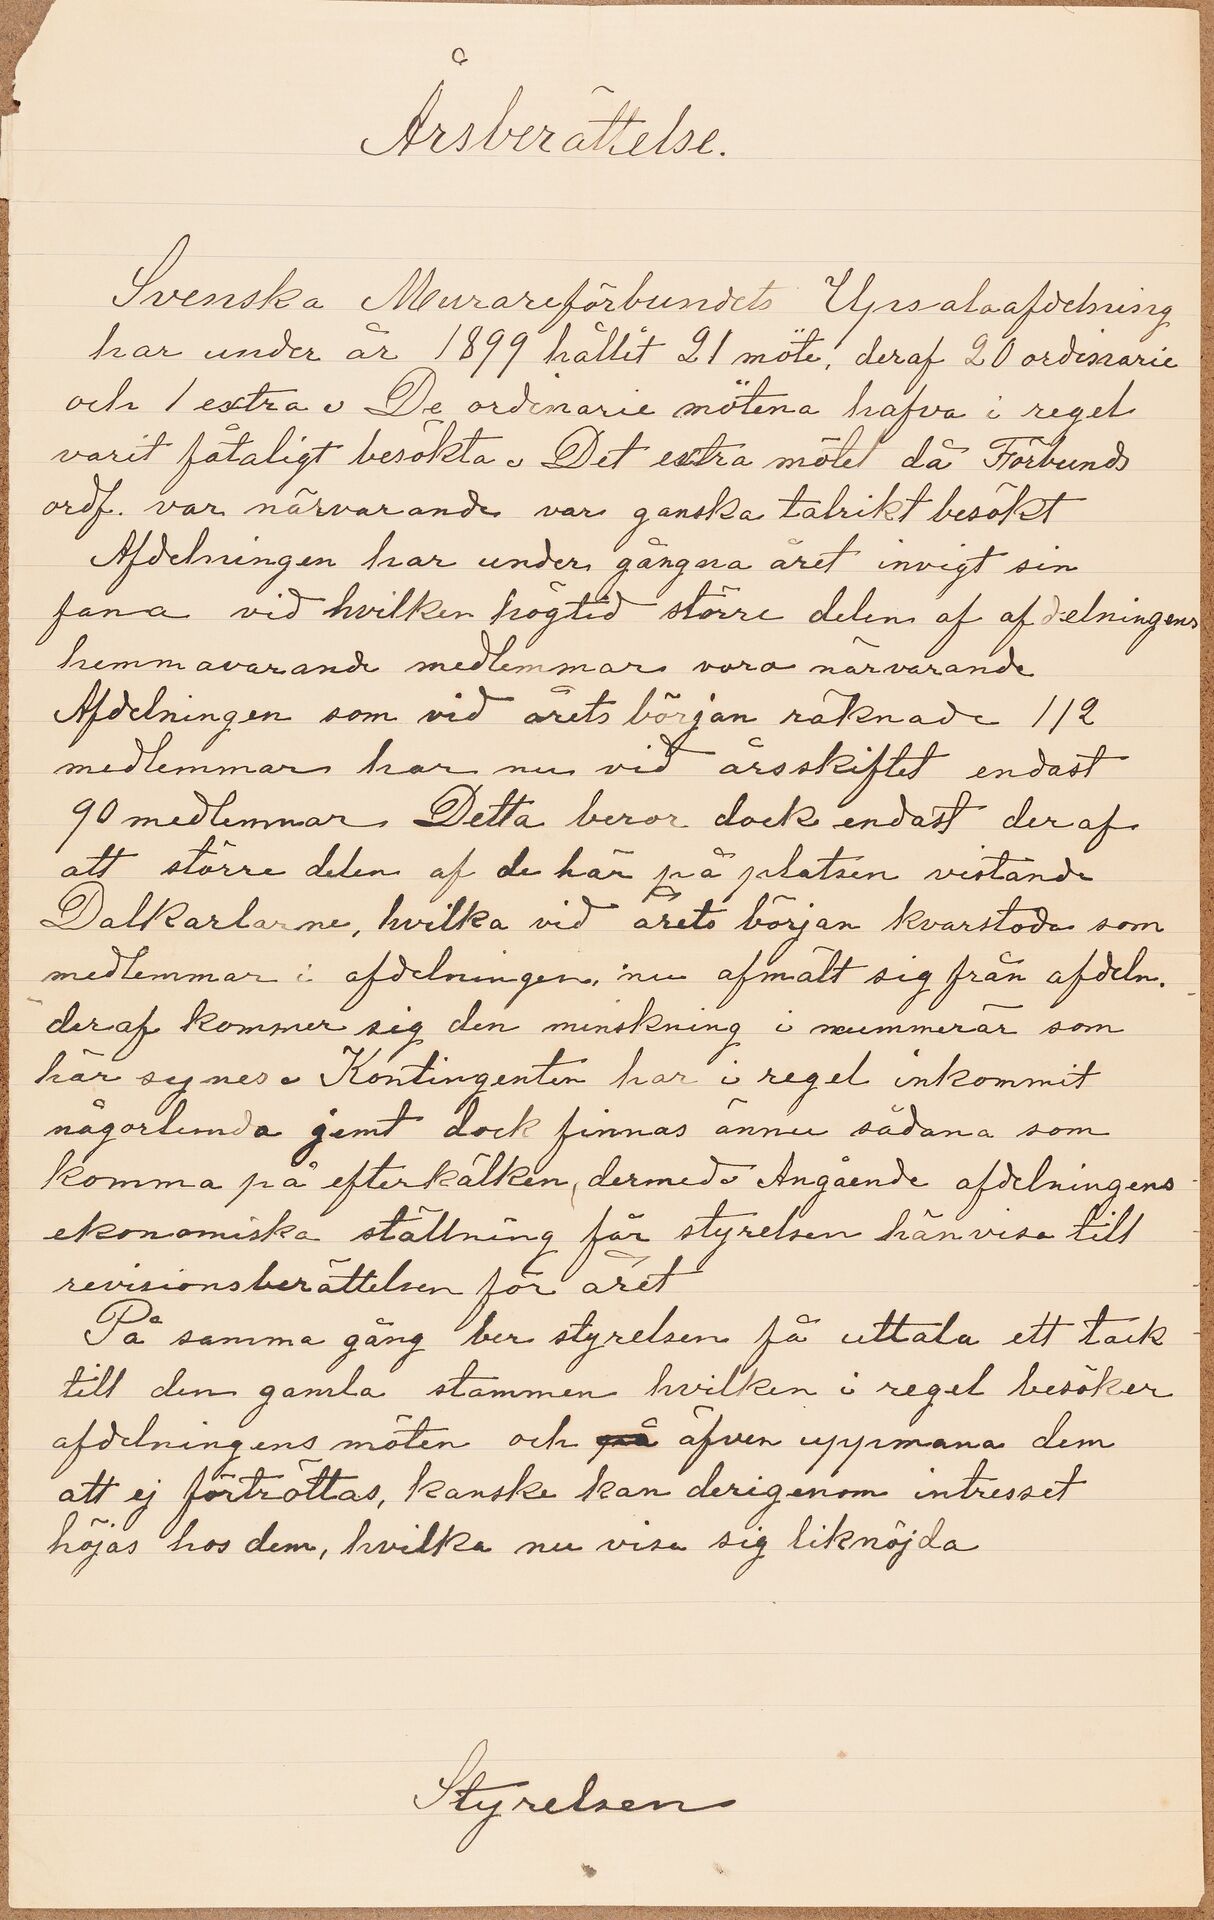 Årsberättelse.
Svenska Murareförbundets Upsalaafdelning
har under år 1899 hållit 21 möte, deraf 20 ordinarie
och 1 extra. De ordinarie mötena hafva i regel
varit fåtaligt besökta. Det extra mötet då Förbunds
ordf. var närvarande var ganska talrikt besökt
Afdelningen har under gångna året invigt sin
fana vid hvilken högtid större delen af afdelningens
hemmavarande medlemmar voro närvarande
Afdelningen som vid årets början räknade 112
medlemmar har nu vid årsskiftet endast
90 medlemmar Detta beror dock endast deraf
att större delen af de här på platsen vistande
Dalkarlarne, hvilka vid årets början kvarstode som
medlemmar i afdelningen, nu afmält sig från afdeln.
deraf kommer sig den minskning i nummerär som
här synes. Kontingenten har i regel inkommit
någorlunda jemt dock finnas ännu sådana som
komma på efterkälken, dermed. Angående afdelningens
ekonomiska ställning får styrelsen hänvisa till
revisionsberättelsen för året
På samma gång ber styrelsen få uttala ett tack
till den gamla stammen hvilken i regel besöker
afdelningens möten och på äfven uppmana dem
att ej förtröttas, kanske kan derigenom intresset
höjas hos dem, hvilka nu visa sig liknöjda
Styrelsen